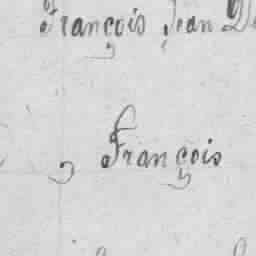 François Jean
François